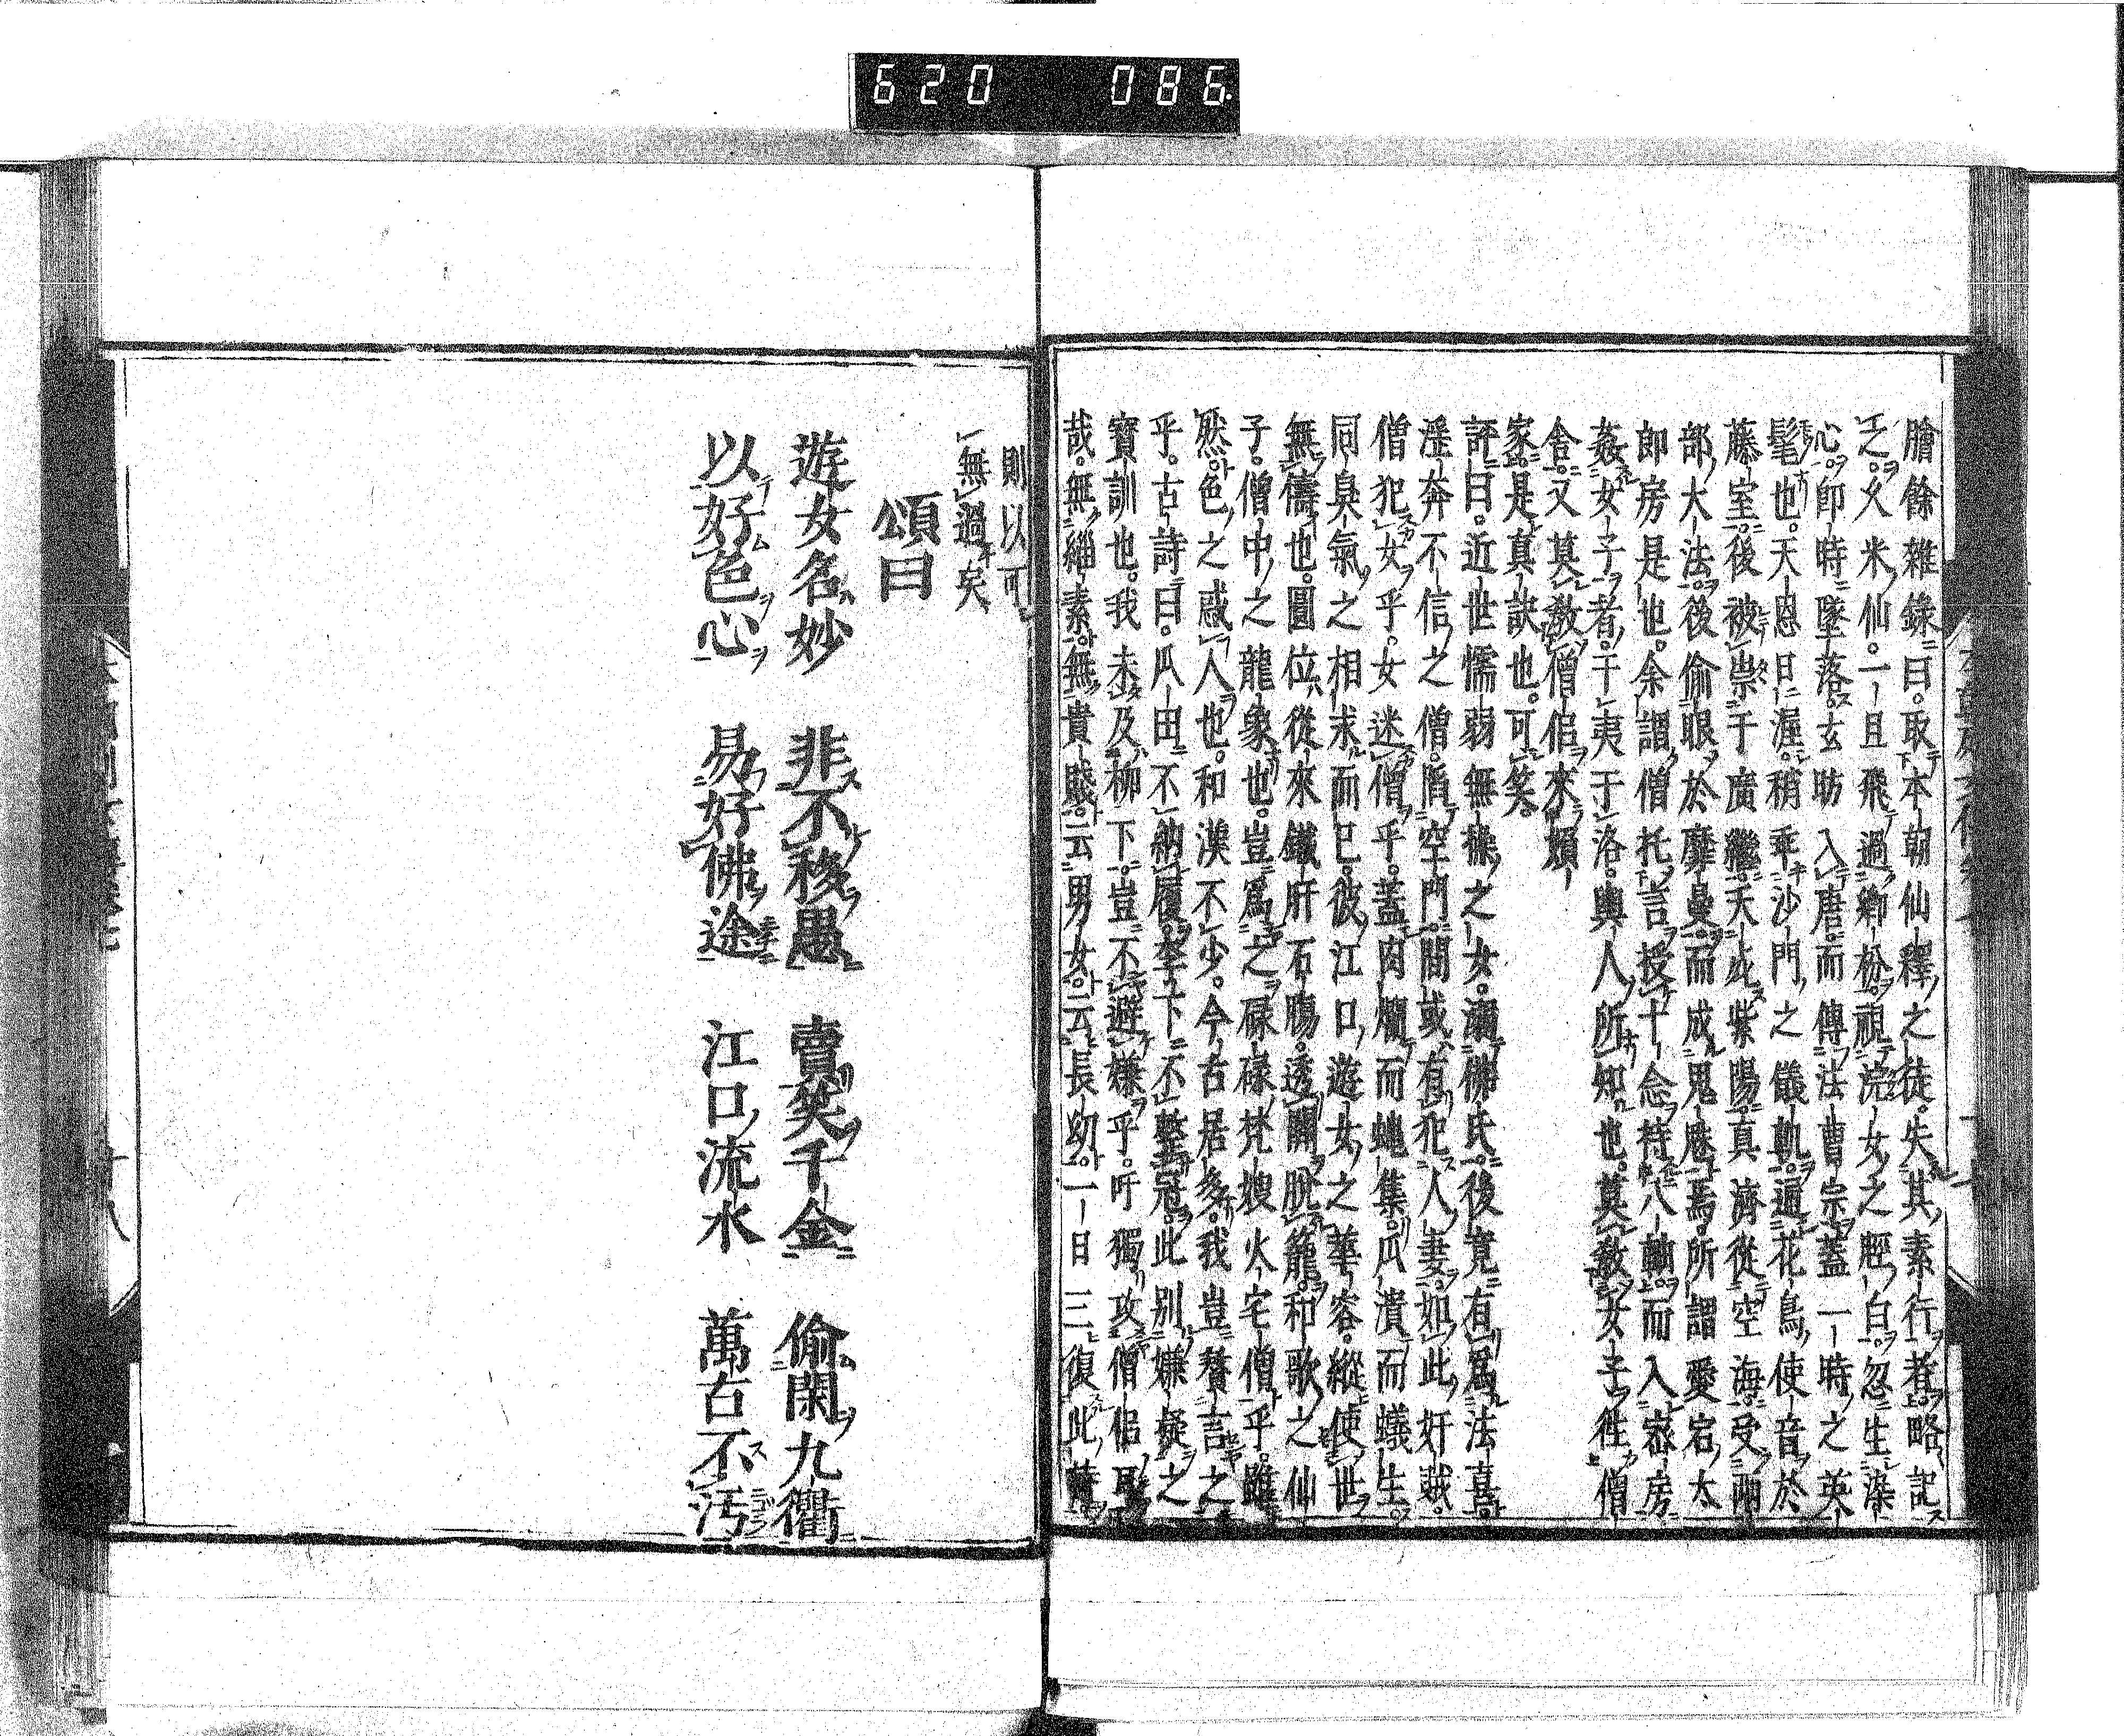 620 086
膾餘雜錄曰。取本朝仙釋之徒。失其素行者。略記
之。久米仙。一旦飛過鄉松。視浣女之脛白。忽生染
心。即時墜落。玄昉入唐。而傳法曹宗。蓋一時之英
髦也。天恩日渥。稍乖沙門之儀軌。通花鳥使音於
藤室。後被祟于廣繼。天
紫陽。真濟從空海。受兩
部大法。後偷眼於
而成鬼魅焉。所謂愛宕太
郎房是也。余謂。僧托言授十念持八軸。而入密房
姦女子者。于夷于洛。輿人所知也。莫教女子往僧
舍。又莫教僧侶來
家。是真訣也。可笑。
評曰。近世懦弱無
之女。
佛氏。後竟有爲法喜。
淫奔不信之僧。
空門。間或有犯人妻。如此奸
。
僧犯女乎。女迷僧乎。蓋肉爛而蠅集。瓜潰而蟻生。
同臭氣之相求而已。彼江口遊女之華容。縱使世
無儔也。圓位從來鐵肝石腸。透關脫籠。和歌之仙
子。僧中之龍象也。豈爲之碌碌梵嫂火宅僧乎。雖
然。色之惑人也。和漢不少。今古居多。我豈贅言之
乎。古詩曰。瓜田不納履。李下不整冠。此別嫌疑之
寶訓也。我未及柳下。豈不避嫌乎。吁獨攻僧侶耳
哉。無緇素。無貴賤。云男女。云長幼。一日三復此
則以可
無過矣
頌曰
遊女名妙 非不移愚 賣笑千金 偷閑九衢
以好色心 易好佛途 江口流水 萬古不汚
十八